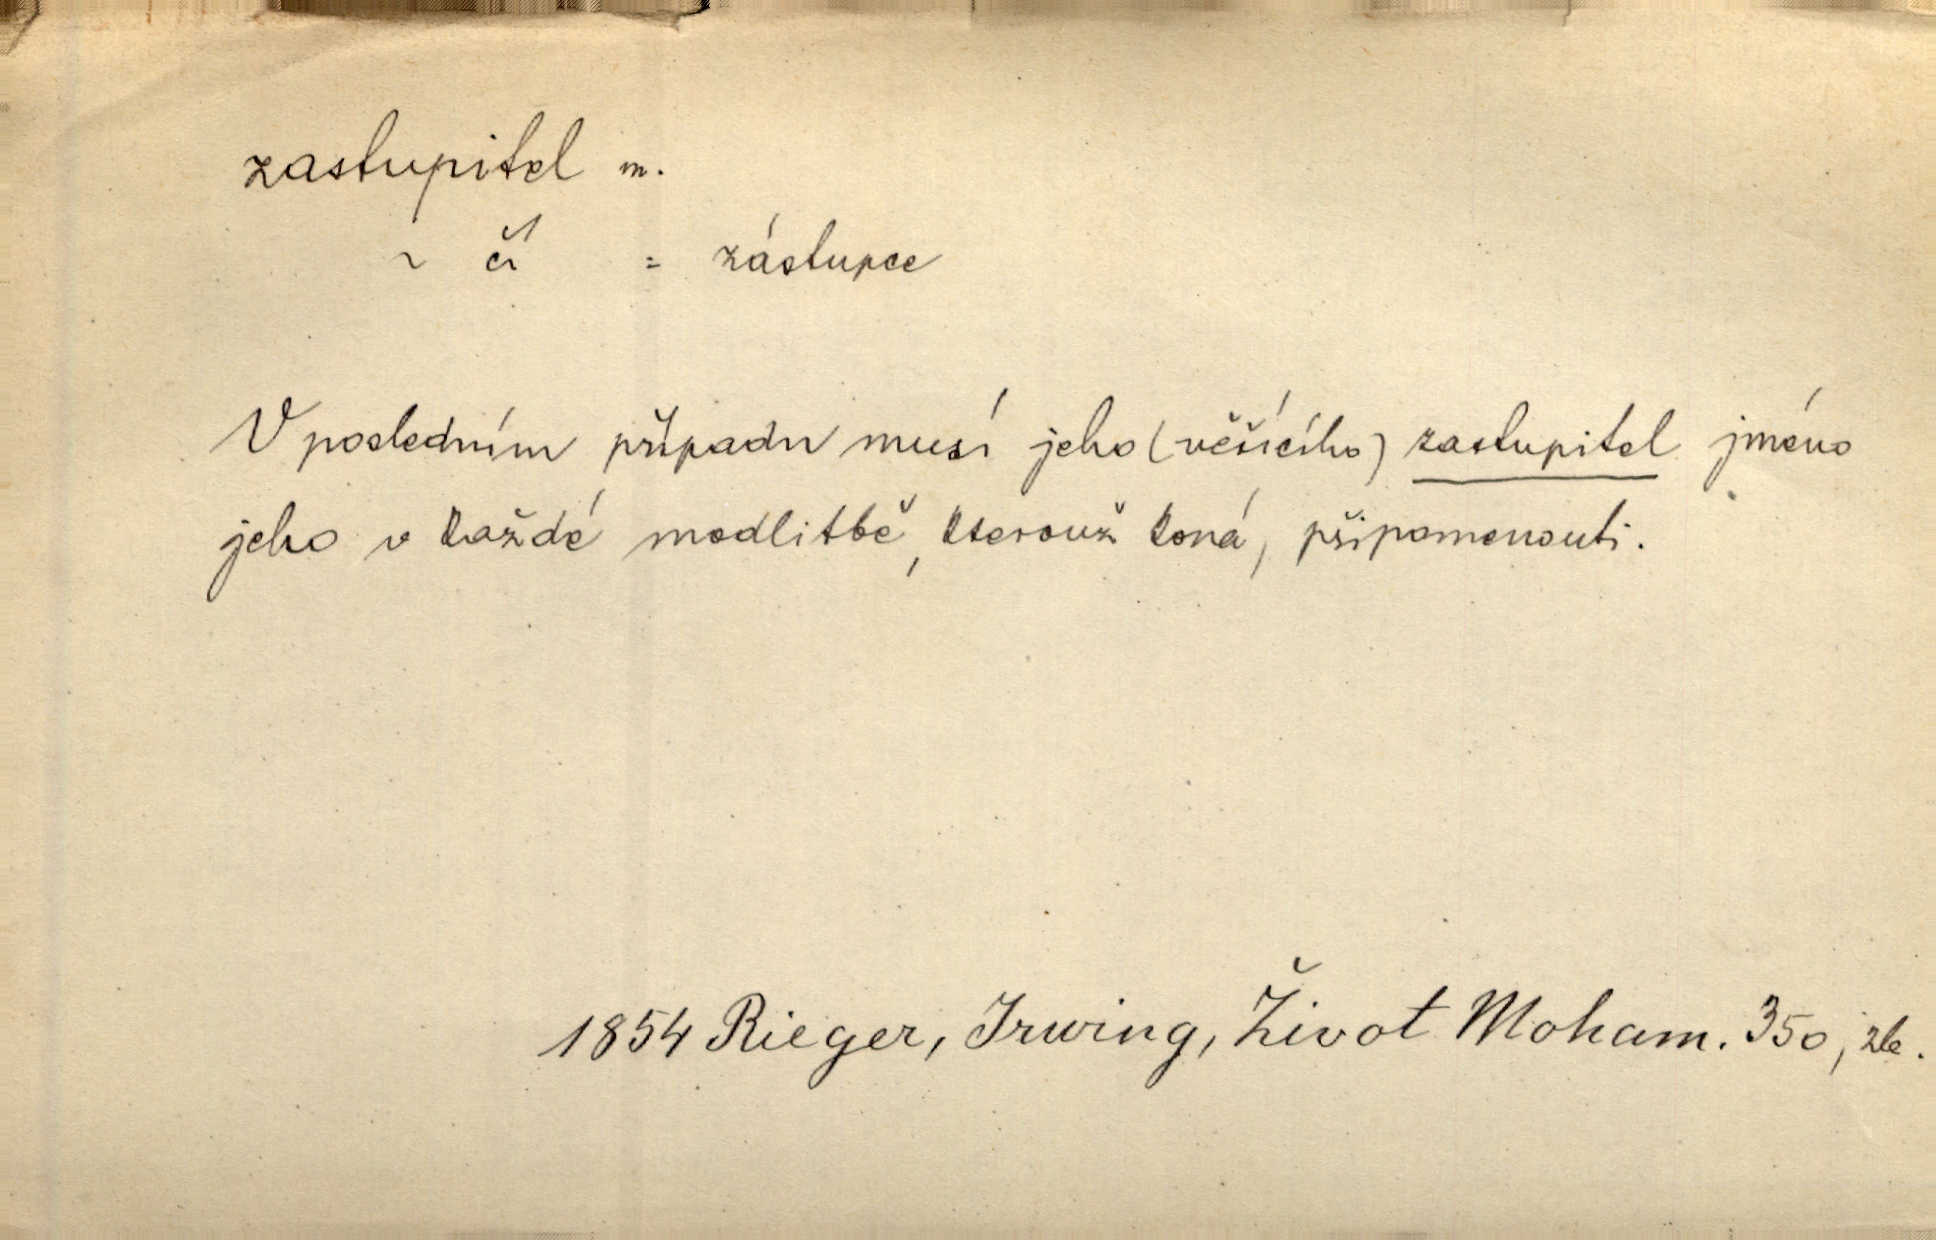 zastupitel m.
~ čí = zástupce
V posledním případu musí jeho (věřícího) zastupitel jméno
jeho v každé modlitbě, kterouž koná, připomenouti.
1854 Rieger, Irwing, Život Moham. 350,